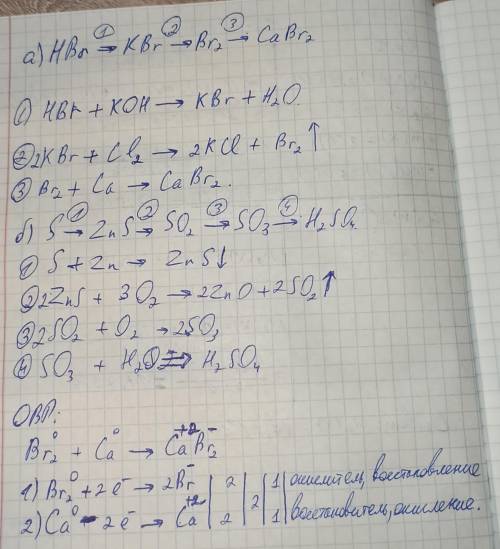 а) HBr →① KBr →② Br₂ →③ CaBr₂
① HBr + KOH → KBr + H₂O
② 2KBr + Cl₂ → 2KCl + Br₂↑
③ Br₂ + Ca → CaBr₂.
б) S →① ZnS →② SO₂ →③ SO₃ →④ H₂SO₄
① S + Zn → ZnS↓
② 2ZnS + 3O₂ → 2ZnO + 2SO₂↑
③ 2SO₂ + O₂ → 2SO₃
④ SO₃ + H₂O ⇒ H₂SO₄
ОВР:
Br₂⁰ + Ca⁰ → Ca⁺²Br₂⁻
1) Br₂⁰ + 2e⁻ → 2Br⁻ | 2 | 2 | 1 | окислитель, восстановление
2) Ca⁰ - 2e⁻ → Ca⁺² | 2 | | 1 | восстановитель, окисление.